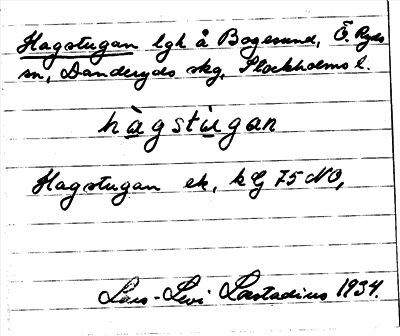 Hagstugan lgh å Bogesund, Ö. Ryds
sn, Danderyds skg, Stockholms l.
hàgstùgan
Hagstugan ek, kG 75 NO,
Lars-Levi Læstadius 1934.